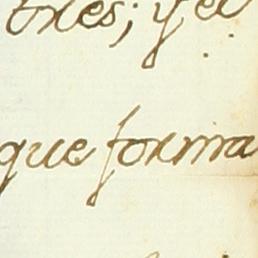 tres; y el
que forma